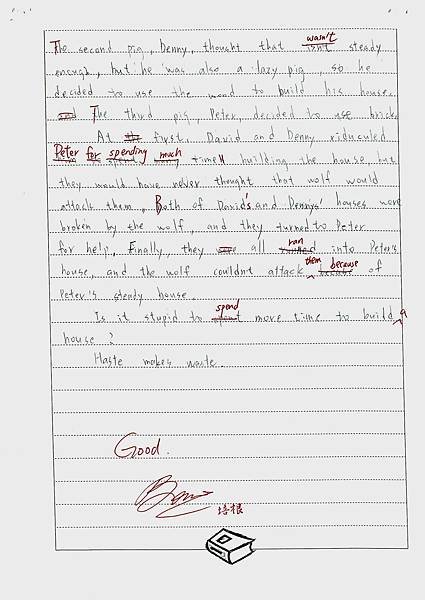 wasn't
The second pig, Denny, thought that isn't steady
enough, but he was also a lazy pig, so he
decided to use the wood to build his house.
The third pig, Peter, decided to use brick.
At first, David and Denny ridiculed
Peter for spending much time building the house, but
they would have never thought that wolf would
attack them, Both of David's and Dennys' houses were
broken by the wolf, and they turned to Peter
ran
for help, Finally, they all into Peter's
them because
house, and the wolf couldn't attack of
Peter's steady house.
spend
Is it stupid to spent more time to build a
house?
Haste makes waste.
Good.
培根